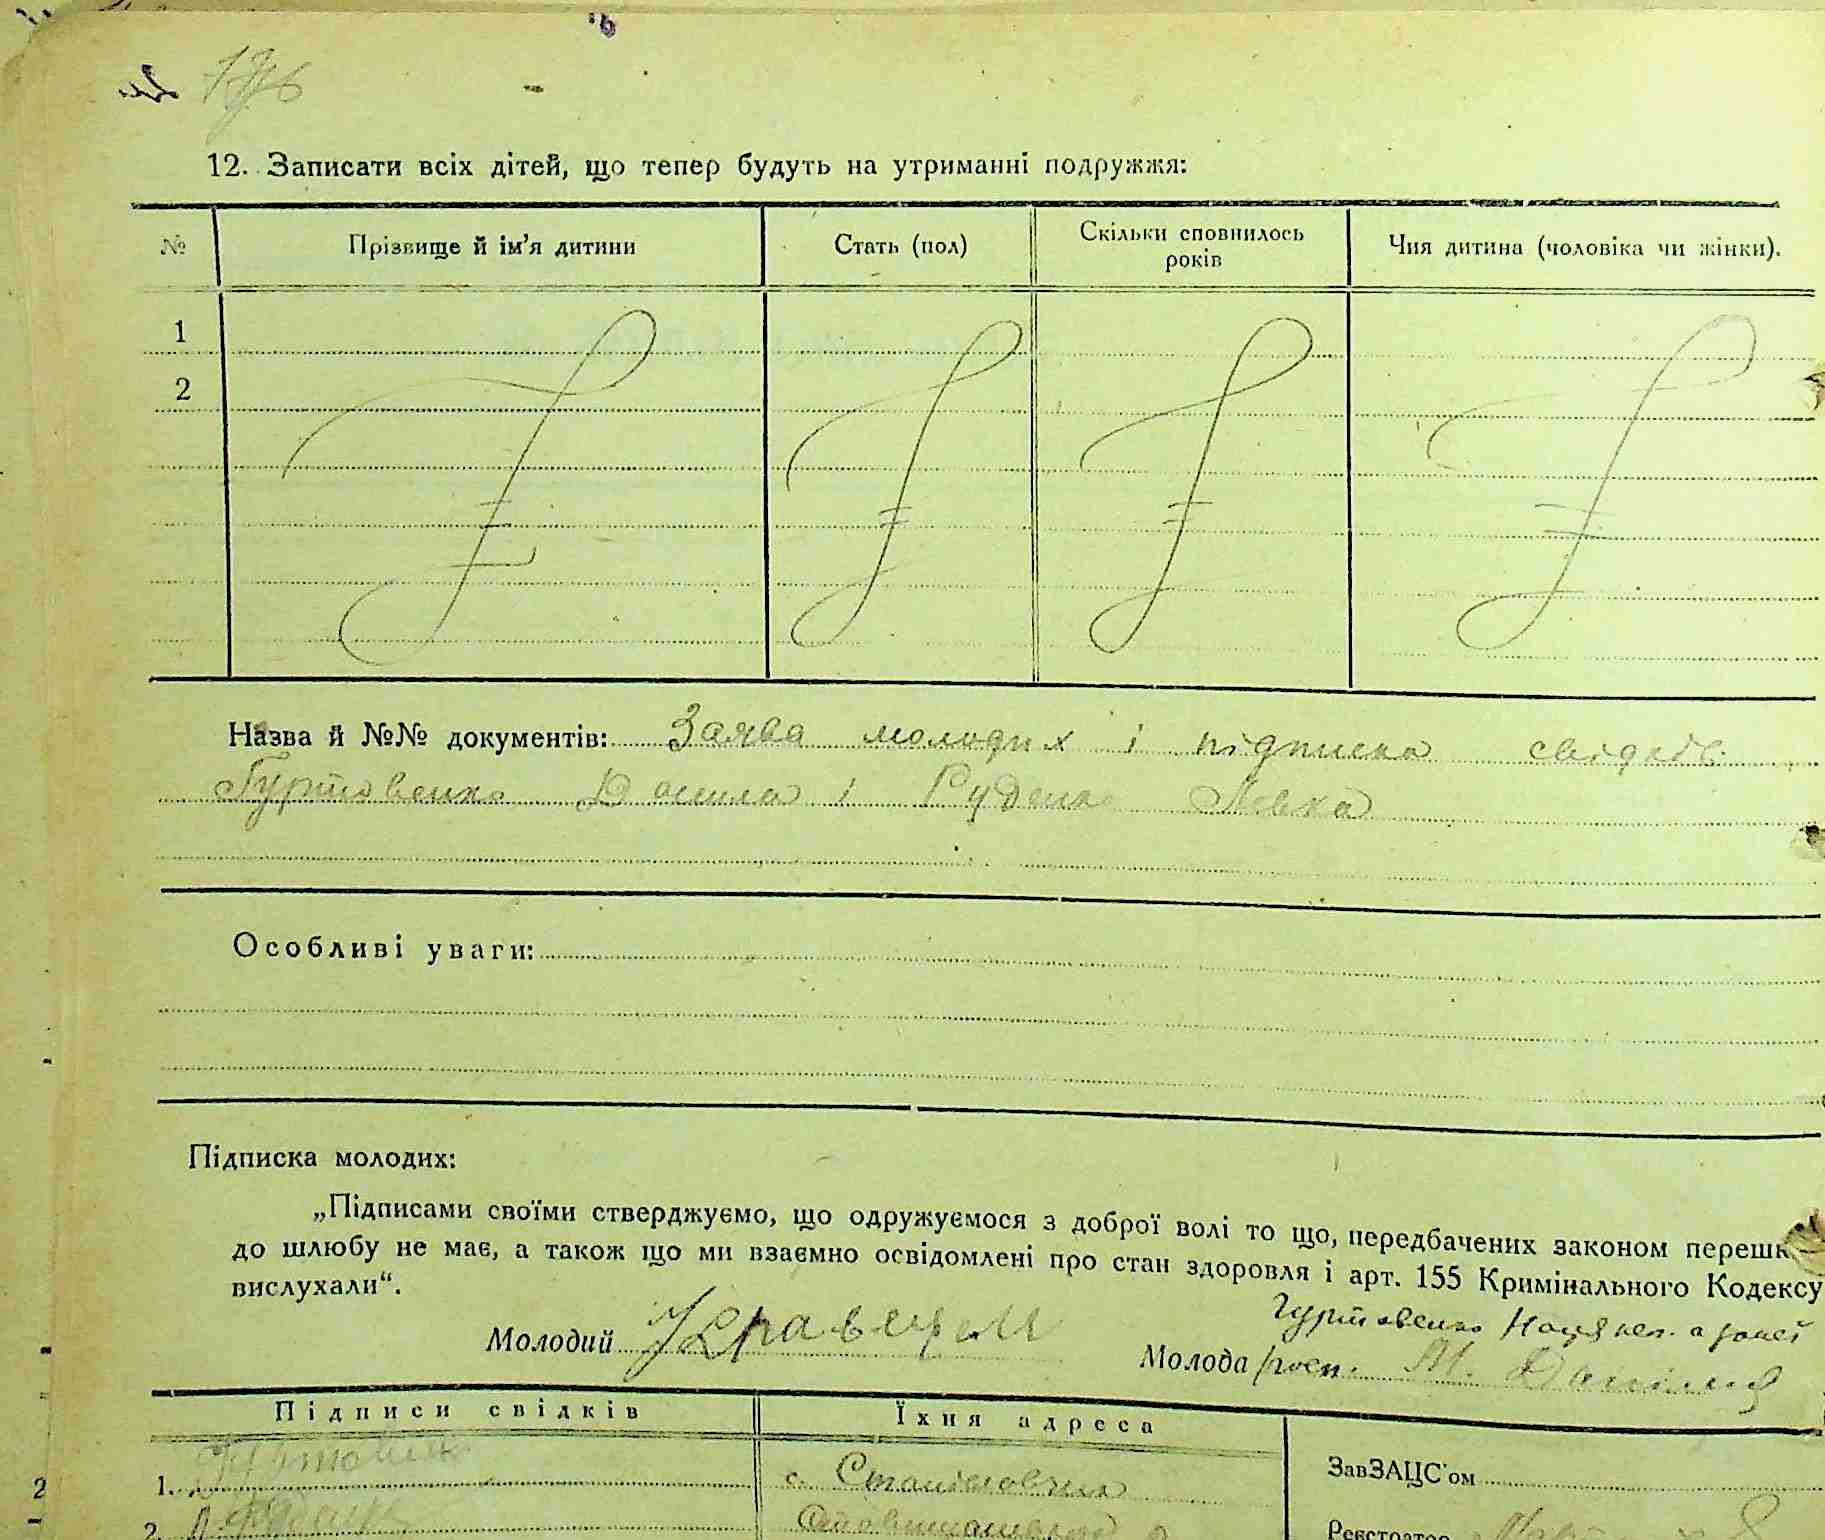 12. Записати всіх дітей, що тепер будуть на утриманні подружжя:
№ Прізвище й ім'я дитини Стать (пол) Скільки сповнилось років Чия дитина (чоловіка чи жінки).
1
2
Назва й №№ документів: Заява молодих і підписка свідків
Гуртовенко Данила і Руденко Левка
Особливі уваги:
Підписка молодих:
„Підписами своїми стверджуємо, що одружуємося з доброї волі то що, передбачених законом перешк
до шлюбу не має, а також що ми взаємно освідомлені про стан здоровля і арт. 155 Кримінального Кодексу
вислухали“.
Гуртовенко
Молодий
Молода
Підписи свідків Їхня адреса
1. с. ЗавЗАЦС'ом
2. Реєстратор
2